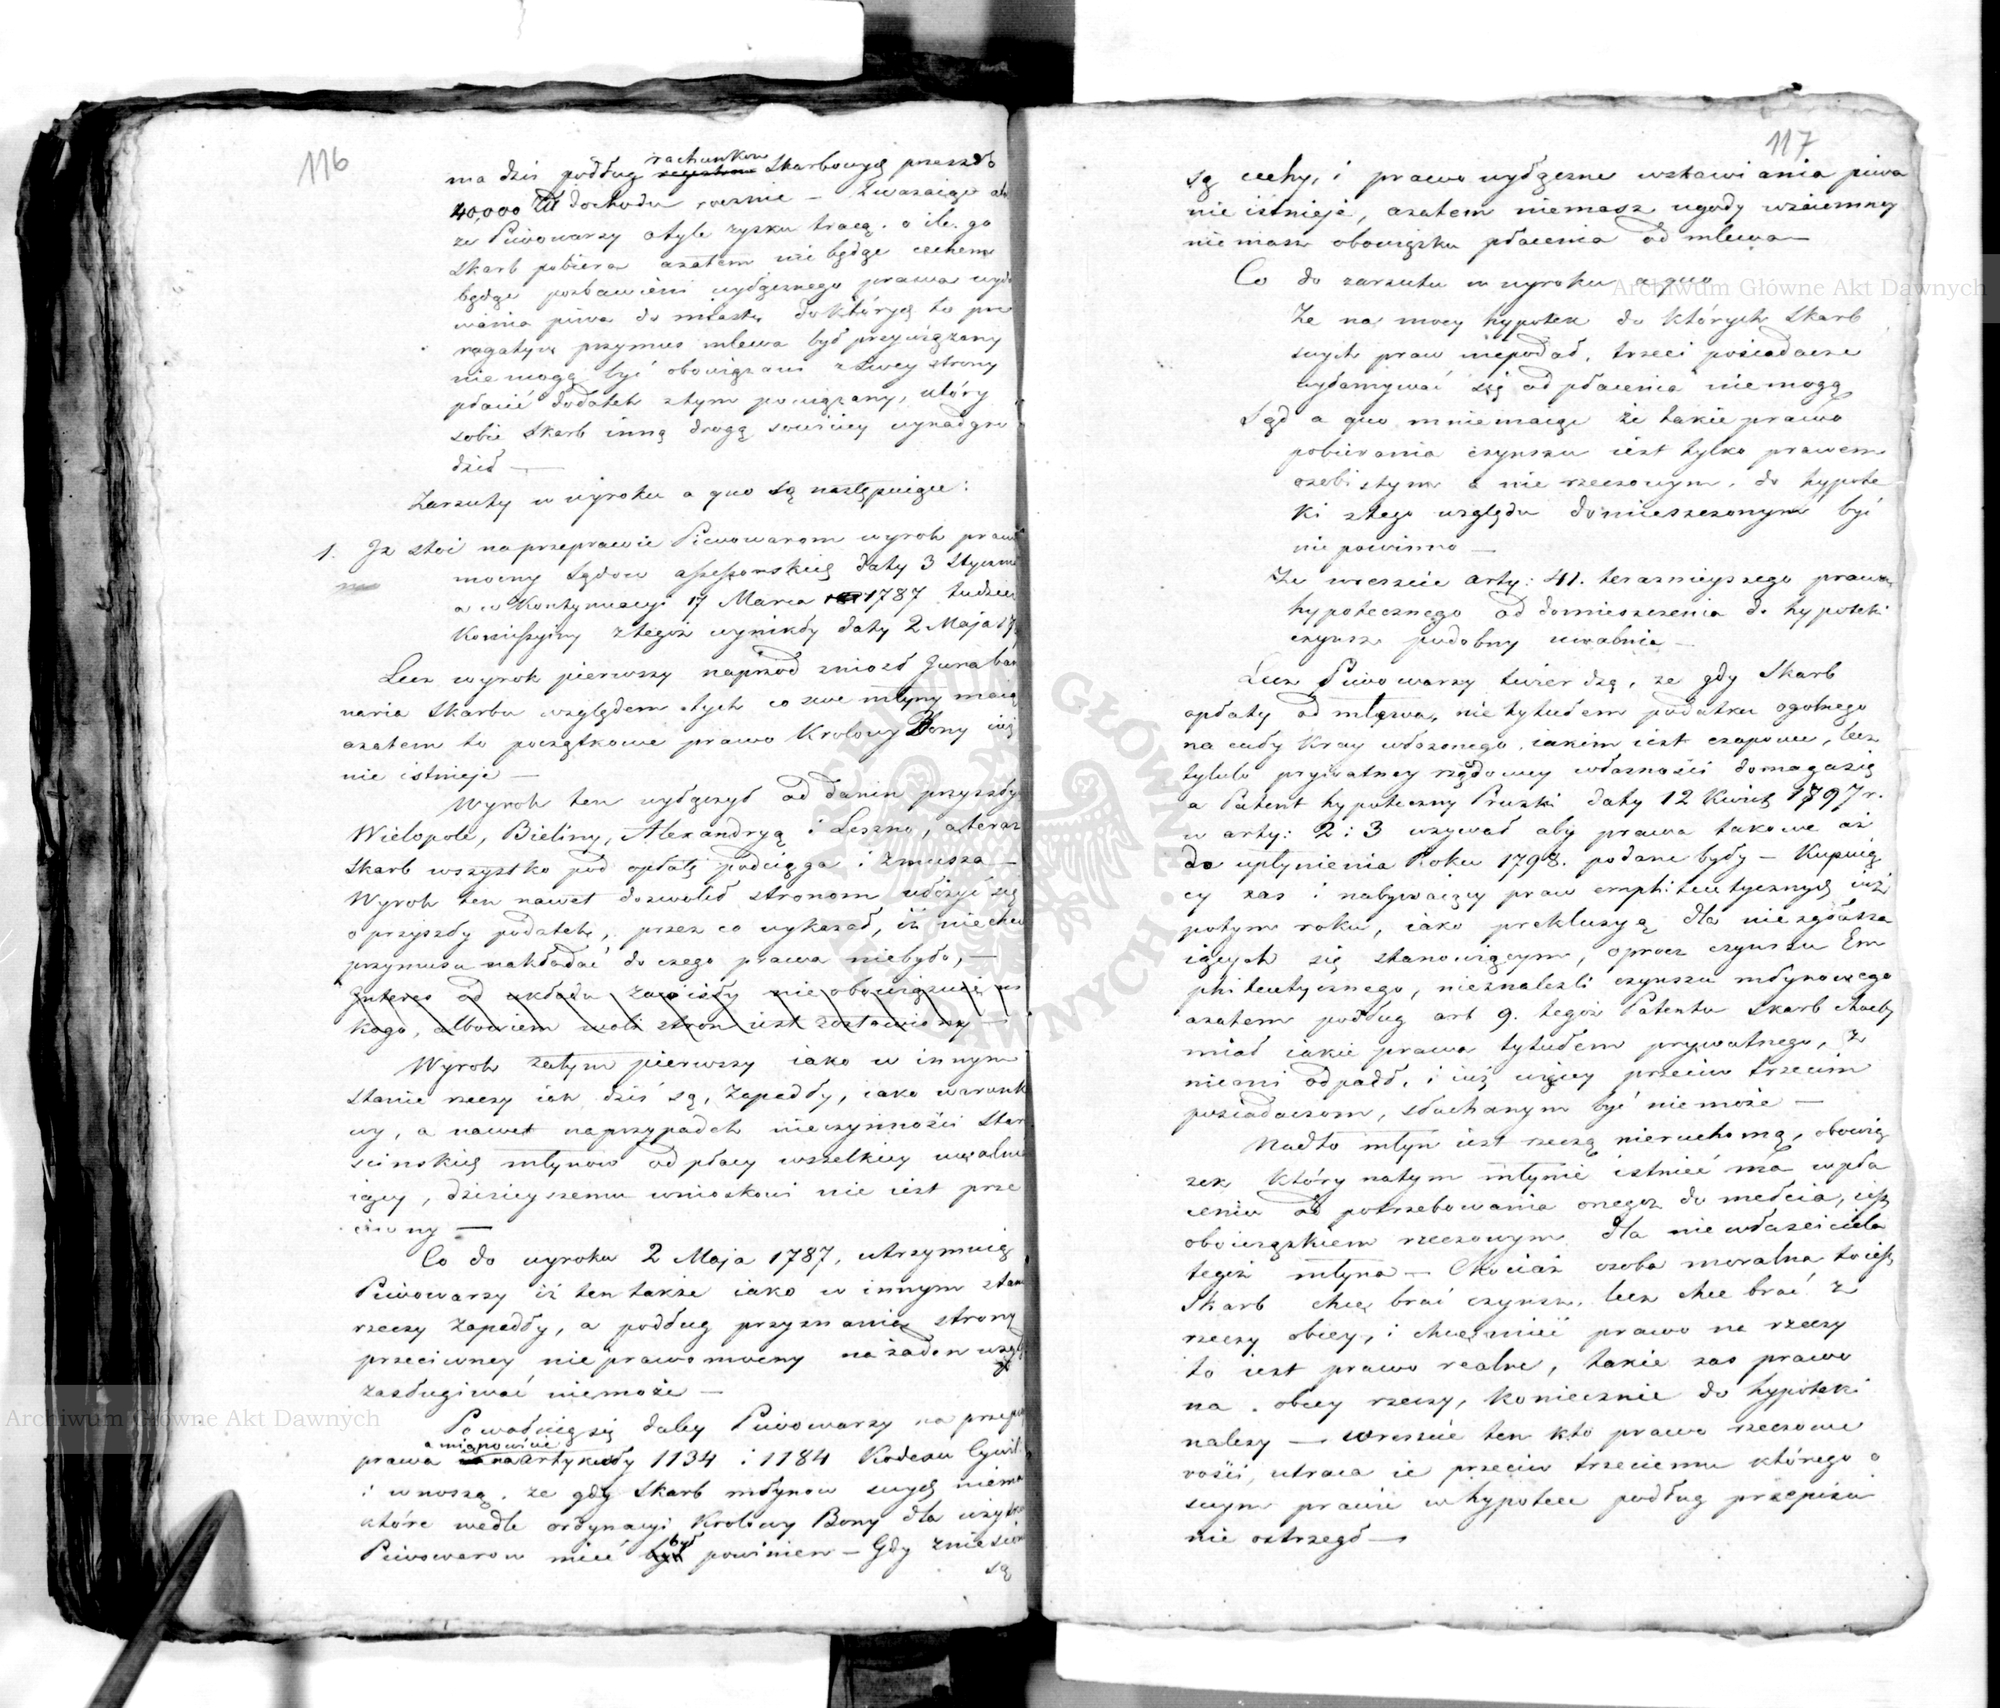 116
ma dziś podług rachunkow Skarbowych przeszło
40,000 Zł dochodu rocznie – Zważaiąc
że Piwowarzy otyle zysku tracą. o ile go
Skarb pobiera azatem nie będąc cechem
będąc pozbawieni wyłącznego prawa
wania piwa do miasta, do których to pre
rogatyw przymus mlewa był przywiązany
nie mogą być obowiązani z swey strony
płacić dodatek ztym powiązany, który
sobie Skarb inną drogą sowiciey wynadgro
dził —
Zarzuty w wyroku a quo są następuiące:
1. Iż stoi na przeprawie Piwowarom wyrok prawo
mocny Sądow assessorskich daty 3 Stycznia
a w Kontynuacyi 17 Marca 1787 tudzież
Komissyiny z tegoż wynikły daty 2 Maja 17
Lecz wyrok pierwszy naprzód zniosł Jura ban
naria Skarbu względem tych co swe młyny maią
azatem to początkowe prawo Krolowy Bony iuż
nie istnieje —
Wyrok ten wyłączył od danin przyszłych
Wielopole, Bieliny, Alexandryą i Leszno, a teraz
Skarb wszystko pod opłatę podciąga i zmusza —
Wyrok ten nawet dozwolił stronom ułożyć się
o przyszły podatek, przez co wykazał, iż niechciał
przymusu nakładać do czego prawa niebyło, —
Interes od układu zawisły nie obowiązuie ni
kogo, albowiem woli stron iest zostawiony —
Wyrok zatym pierwszy iako w innym
stanie rzeczy iak dziś są, zapadły, iako warunko
wy, a nawet naprzypadek nieczynności Staro
scinskich młynow od płacy wszelkiey uwalnia
iący, dzisieyszemu wnioskowi nie iest prze
ciwny —
Co do wyroku 2 Maja 1787, utrzymuią
Piwowarzy iż ten także iako w innym stanie
rzeczy zapadły, a podług przyznania strony
przeciwney nieprawomocny na żaden wzgląd
zasługiwać niemoże —
Powołuią się daley Piwowarzy na przepisy
prawa a mianowicie artykuły 1134 i 1184 Kodexu Cywil:
i wnoszą, że gdy Skarb młynow swych niema
które wedle ordynacyi Krolowy Bony dla użytku
Piwowarow mieć był powinien — Gdy zniesione
są
117
są cechy, i prawo wyłączne wstawiania piwa
nie istnieje, azatem niemasz ugody wzaiemney
niemasz obowiązku płacenia od mlewa —
Co do zarzutu w wyroku a quo
Że na mocy hypotek do których Skarb
swych praw niepodał, trzeci posiadacze
wyłamywać się od płacenia nie mogą
Sąd a quo mniemaiąc że takie prawo
pobierania czynszu iest tylko prawem
osobistym a nie rzeczowym, do hypote
ki z tego względu domieszczonym być
nie powinno —
Że wreszcie arty: 41. terazniejszego prawa
hypotecznego od domieszczenia do hypoteki
czynsz podobny uwalnia —
Lecz Piwowarzy twierdzą, że gdy Skarb
opłaty od mlewa, nie tytułem podatku ogolnego
na cały Kray włożonego, iakim iest czopowe, lecz
tytułu prywatney rządowey własności domaga się
a Patent hypoteczny Pruski daty 12 Kwiet 1797 r.
w arty: 2 i 3 wzywał aby prawa takowe aż
do upłynienia Roku 1798. podane były — Kupuią
cy zas i nabywaiący praw emphiteutycznych iuż
potym roku, iako preklusyą dla niezgłasza
iących się stanowiącym, oprocz czynszu Em
phiteutycznego, nieznalezli czynszu młynowego
azatem podług art 9. tegoż Patentu Skarb choćby
miał iakie prawa tytułem prywatnego, z
niemi odpadł, i iuż więcey przeciw trzecim
posiadaczom, słuchanym być niemoże —
Nadto młyn iest rzeczą nieruchomą, obowią
zek który na tym młynie istnieć ma wpła
ceniu od potrzebowania onegoż do mełcia, iest
obowiązkiem rzeczowym dla niewłaściciela
tegoż młyna — Chociaż osoba moralna to iest
Skarb chce brać czynsz, lecz chce brać z
rzeczy obcey, i chce mieć prawo na rzeczy
to iest prawo realne, takie zas prawo
na obcey rzeczy, koniecznie do hypoteki
należy — wreszcie ten kto prawo rzeczowe
rości, utraca ie przeciw trzeciemu którego o
swym prawie w hypotece podług przepisu
nie ostrzegł —
Archiwum Główne Akt Dawnych
Archiwum Główne Akt Dawnych
ARCHIWUM GŁÓWNE AKT DAWNYCH